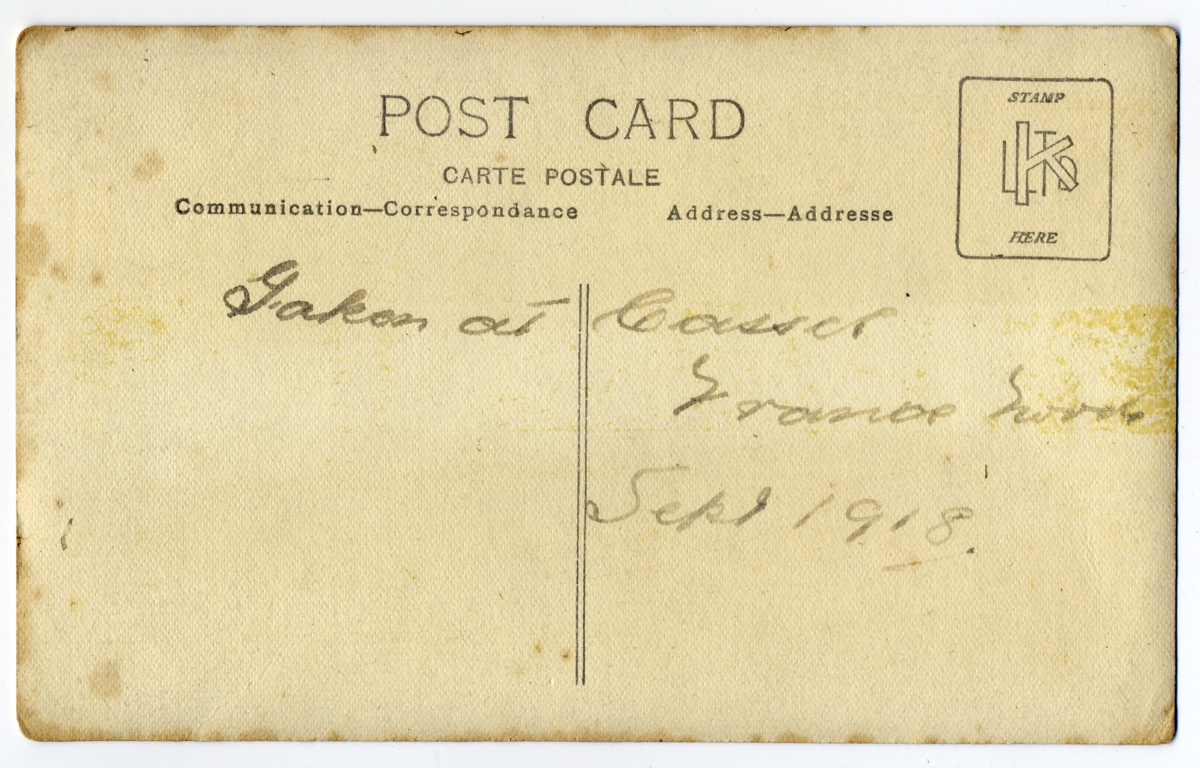 POST CARD
CARTE POSTALE
Communication—Correspondance
Address—Addresse
STAMP
HERE
Taken at Cassel
France
Sept 1918.